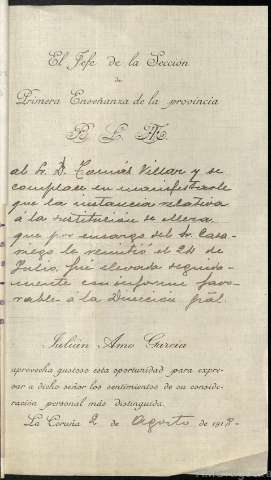 El Jefe de la Sección
de
Primera Enseñanza de la provincia
B. L. M.
al Sr. D. Tomás Villar y se
complace en manifestarle
que la instancia relativa
á la sustitución de
que por encargo del Sr. Casa-
riego le remitió el 24 de
Julio, fué elevada seguida-
mente con informe favo-
rable á la Dirección gral.
Julián Amo García
aprovecha gustoso esta oportunidad para expre-
sar a dicho señor los sentimientos de su conside-
ración personal más distinguida.
La Coruña 2 de Agosto de 1918.